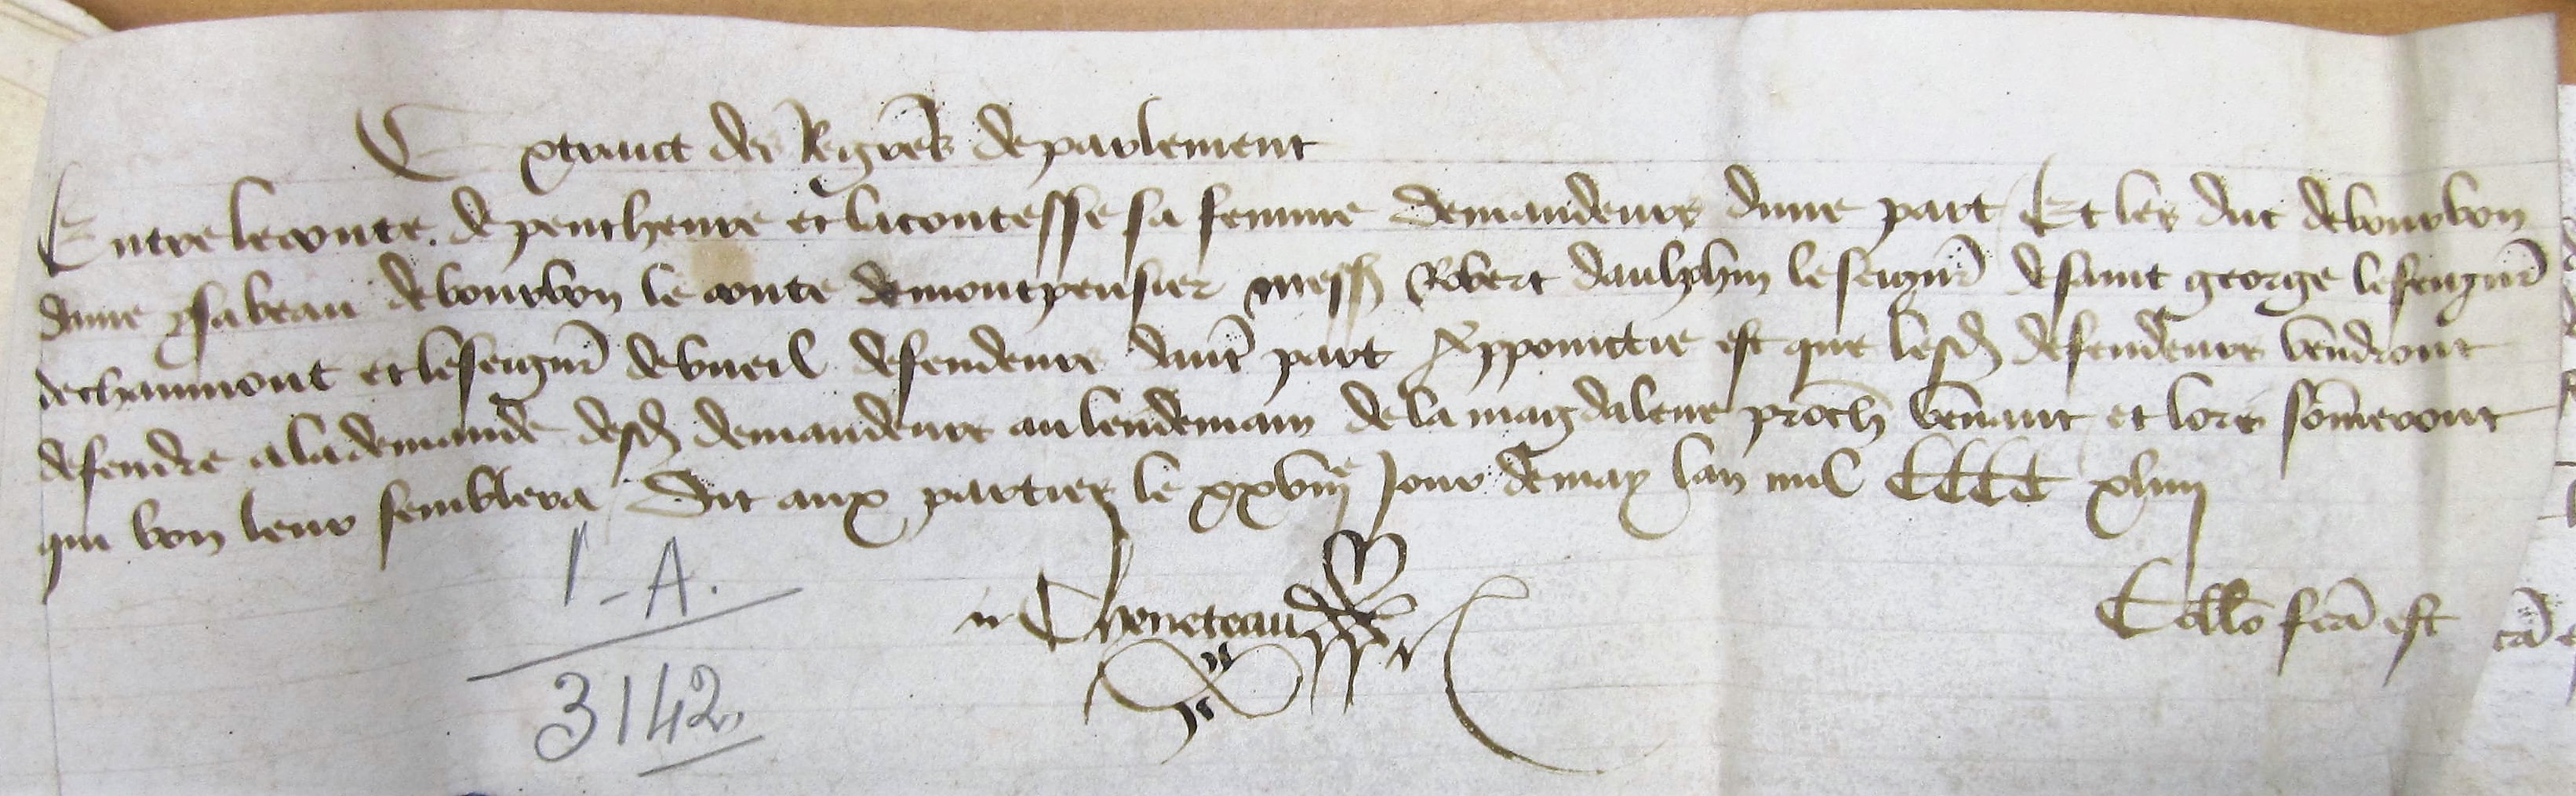 Extraict des Regrēs de parlement
Entre le conte de penthevre et la contesse sa femme demandeurs dune part Et les duc de bourbon
dame ysabeau de bourbon le conte de montpensier messẽ Robert daulphin le seignr̄ de saint george le seignr̄
de chaumont et le seignr̄ de bueil defendeurs daut̄ part Appoinctie est que lesd̄ defendeurs vendront
defendre a la demande desd̄ demandeurs au lendemain de la magdalene proch̄ venant et lors som̄eront
qui bon leur semblera Dit aux parties le xxviije Jour de may lan mil CCCC xliiij
Cheneteau
Collō fcā est
1-A.
3142.